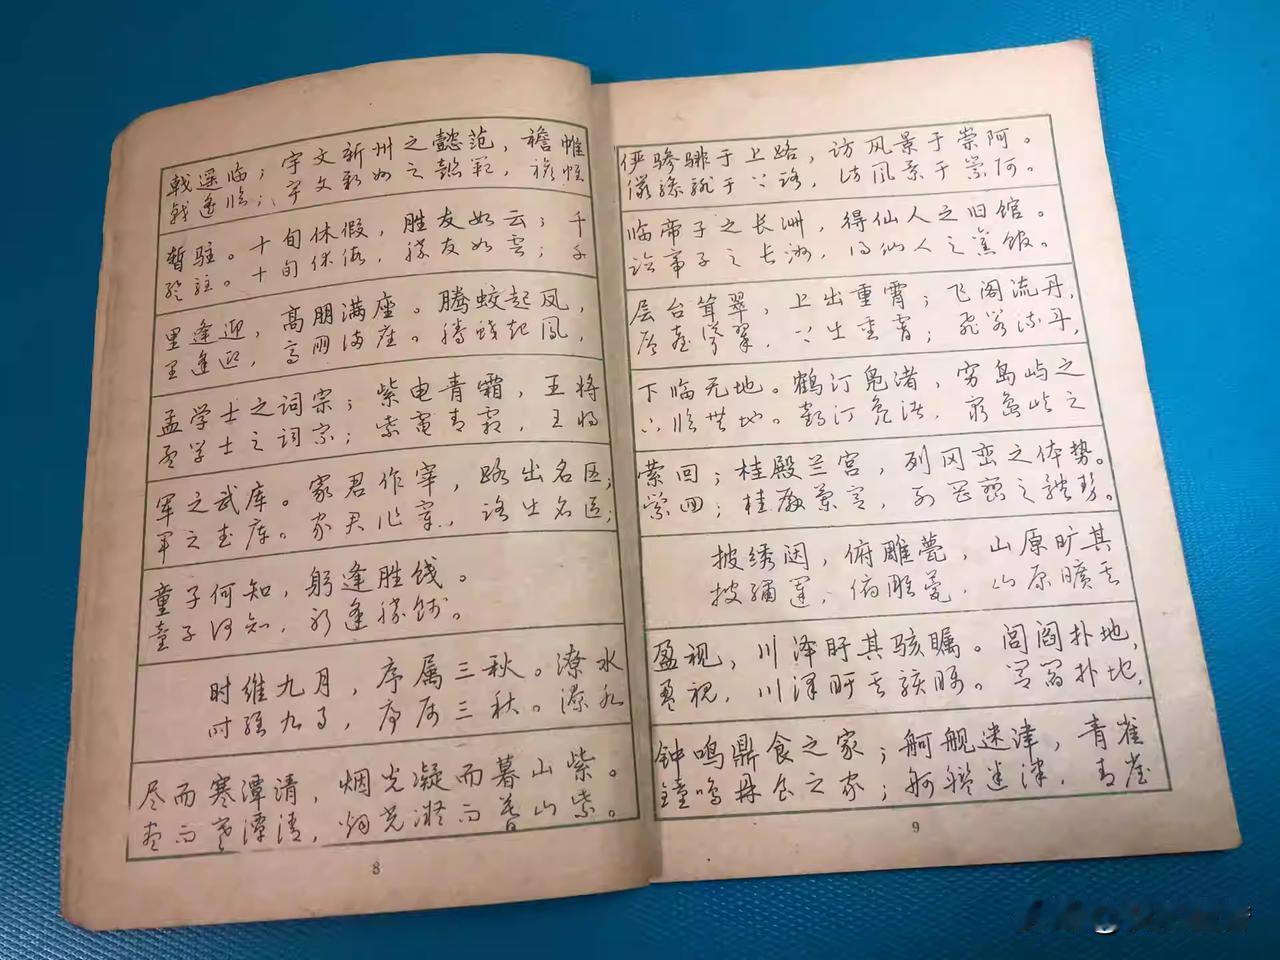 戟遥临；宇文新州之懿范，襜帷
戟遥臨；宇文新州之懿範，襜帷
暂驻。十旬休假，胜友如云；千
暫駐。十旬休假，勝友如雲；千
里逢迎，高朋满座。腾蛟起凤，
里逢迎，高朋滿座。騰蛟起鳳，
孟学士之词宗；紫电青霜，王将
孟学士之词宗；紫電青霜，王将
军之武库。家君作宰，路出名区；
軍之武库。家君作宰，路出名區；
童子何知，躬逢胜饯。
童子何知，躬逢勝餞。
时维九月，序属三秋。潦水
时维九月，序属三秋。潦水
尽而寒潭清，烟光凝而暮山紫。
尽而寒潭清，烟光凝而暮山紫。
8
俨骖騑于上路，访风景于崇阿。
儼骖騑于上路，访風景于崇阿。
临帝子之长洲，得仙人之旧馆。
临帝子之长洲，得仙人之舊館。
层台耸翠，上出重霄；飞阁流丹，
层臺聳翠，上出重霄；飛阁流丹，
下临无地。鹤汀凫渚，穷岛屿之
下临無地。鹤汀凫渚，窮島屿之
萦回；桂殿兰宫，列冈峦之体势。
萦回；桂殿蘭宫，列岡巒之體势。
披绣闼，俯雕甍，山原旷其
披繡闼，俯雕甍，山原曠其
盈视，川泽盱其骇瞩。闾阎扑地，
盈视，川泽盱其骇瞩。闾阎扑地，
钟鸣鼎食之家；舸舰迷津，青雀
鐘鸣鼎食之家；舸艦迷津，青雀
9